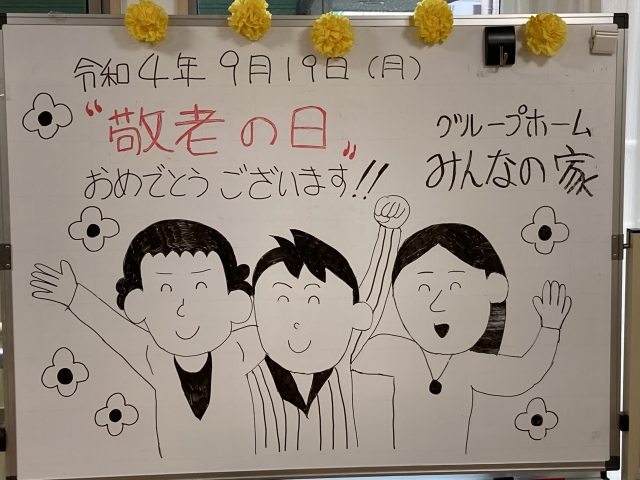 令和4年 9月19日(月)
“敬老の日„
おめでとうございます!!
グループホーム
みんなの家